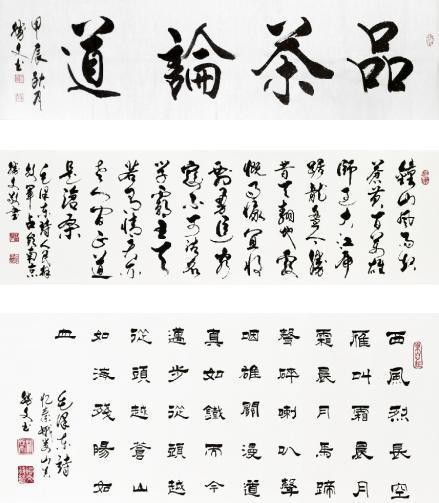 品茶論道
甲辰秋月
勝文书
鐘山風雨起
蒼黄百萬雄
師過大江虎
踞龍盤今勝
昔天翻地覆
慨而慷宜將
剩勇追窮
寇不可沽名
學霸王天
若有情天亦
老人間正道
是滄桑
毛泽东詩人民解
放軍占领南京
勝文敬書
西風烈長空
雁叫霜晨月
霜晨月馬蹄
聲碎喇叭聲
咽雄關漫道
真如鐵而今
邁步從頭越
從頭越蒼山
如海殘陽如
血
毛泽东詩
忆秦娥娄山关
勝文书